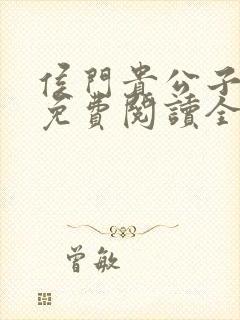 侯門貴公子
免費閱讀全
曾敏